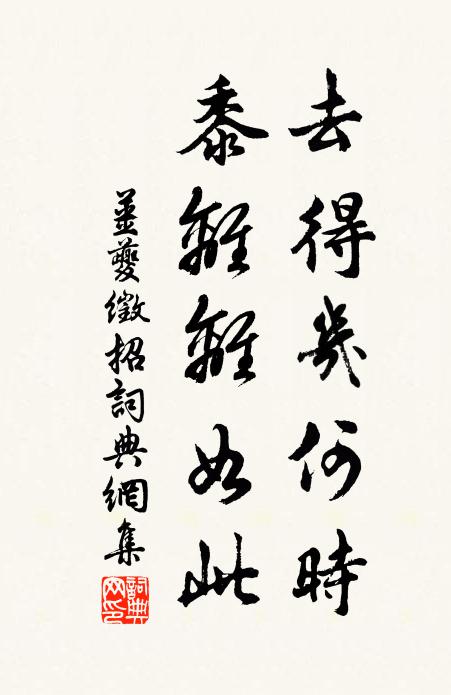 去得幾何時
黍離離如此
姜夔徵招詞典網集
詞典網印